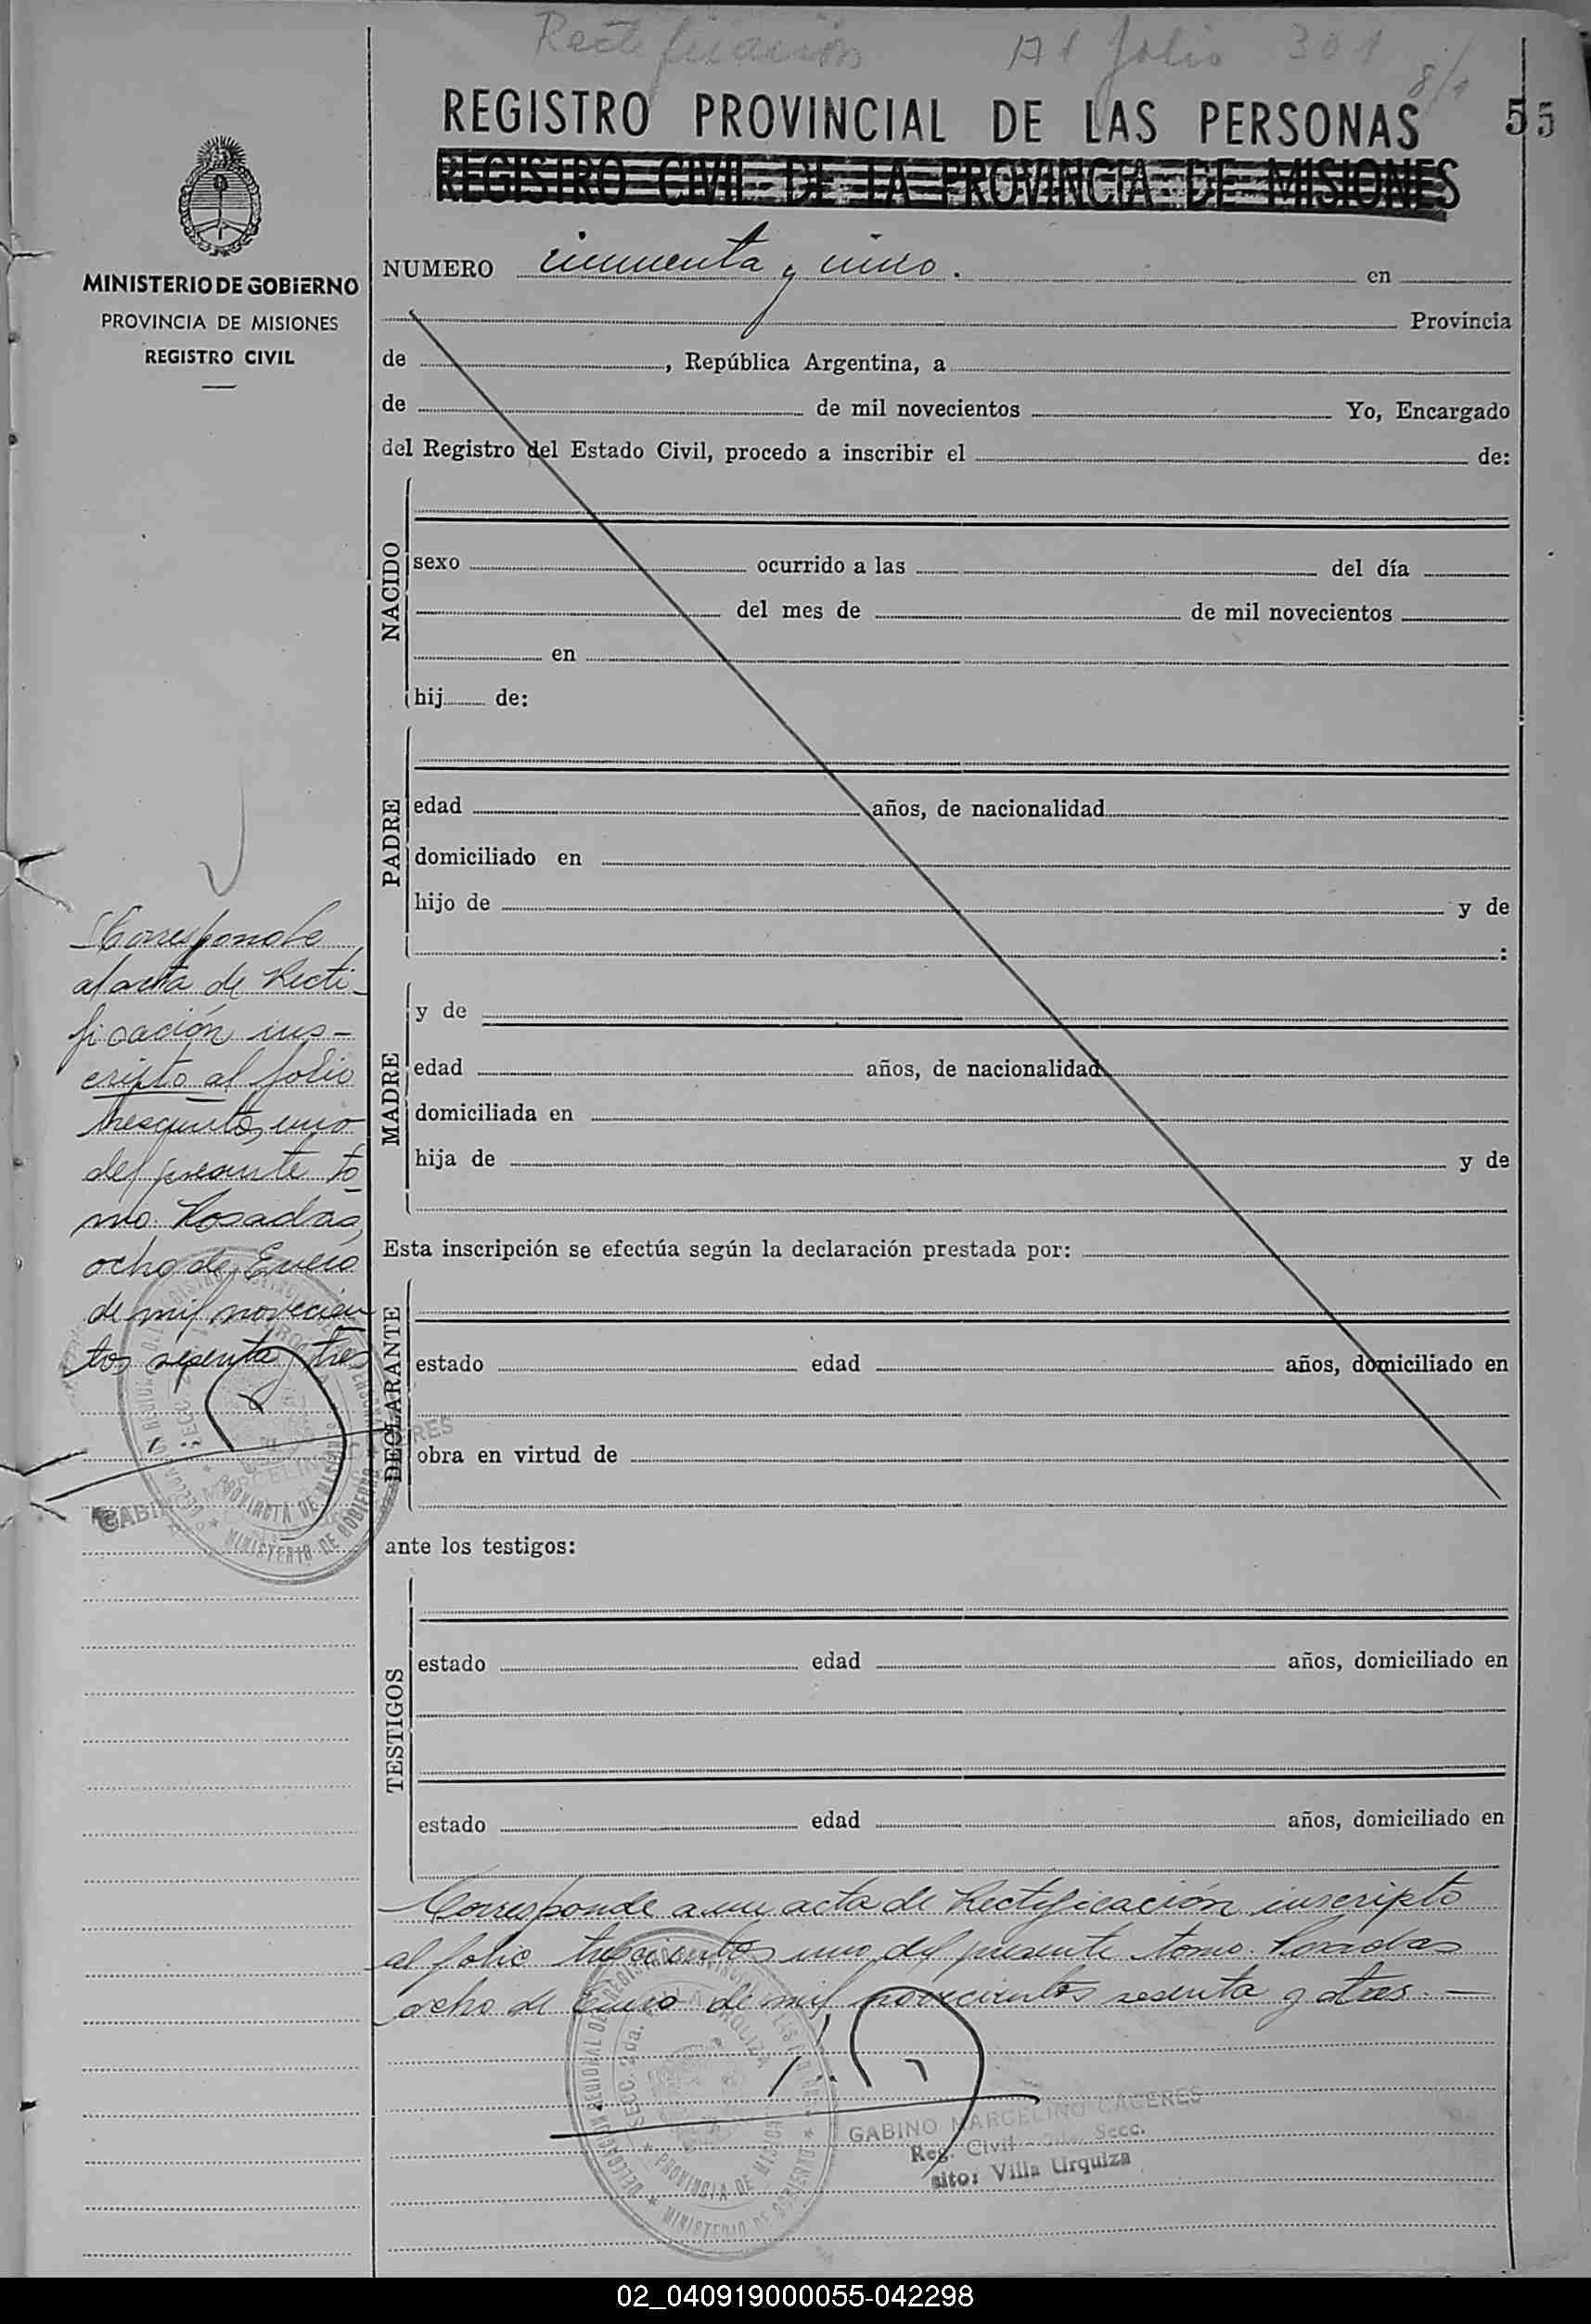 Rectificación Al folio 301
8/1
REGISTRO PROVINCIAL DE LAS PERSONAS 55
REGISTRO CIVIL DE LA PROVINCIA DE MISIONES
MINISTERIO DE GOBIERNO
PROVINCIA DE MISIONES
REGISTRO CIVIL
NUMERO cincuenta y cinco. en
Provincia
de , República Argentina, a
de de mil novecientos Yo, Encargado
del Registro del Estado Civil, procedo a inscribir el de:
NACIDO
sexo ocurrido a las del día
del mes de de mil novecientos
en
hij de:
PADRE
edad años, de nacionalidad
domiciliado en
hijo de y de
:
MADRE
y de
edad años, de nacionalidad
domiciliada en
hija de y de
Esta inscripción se efectúa según la declaración prestada por:
DECLARANTE
estado edad años, domiciliado en
obra en virtud de
ante los testigos:
TESTIGOS
estado edad años, domiciliado en
estado edad años, domiciliado en
Corresponde a un acta de Rectificación inscripto
al folio trescientos uno del presente tomo. Posadas
ocho de Enero de mil novecientos sesenta y tres.—
Corresponde
al acta de Recti-
ficación ins-
cripto al folio
trescientos uno
del presente to
mo. Posadas
ocho de Enero
de mil novecien
tos sesenta y tres
PROVINCIA DE MISIONES
MINISTERIO DE GOBIERNO
DELEGACION REGIONAL DE REGISTRO PROVINCIAL DE LAS PERSONAS
SECC. 2da. URQUIZA
PROVINCIA DE MISIONES
MINISTERIO DE GOBIERNO
GABINO MARCELINO CACERES
Reg. Civil Secc.
sito: Villa Urquiza
02_040919000055-042298